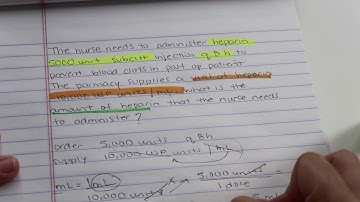 The nurse needs to administer heparin
5000 unit subcut injection q 8 h to
prevent blood clots in post op patient
The pharmacy supplies a vial of heparin
10,000 USP units / mL. What is the
amount of heparin that the nurse needs
to administer?
order 5,000 units q 8 h
supply 10,000 USP units 1 mL
mL = 1 mL x 5,000 units =
10,000 units 1 dose